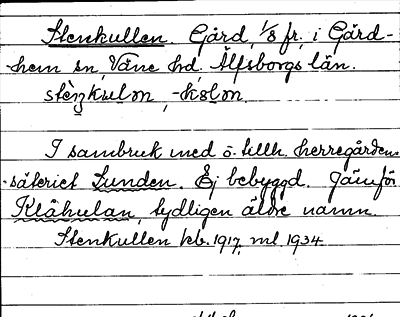 Stenkullen. Gård, 1/8 fr, i Gård-
hem sn, Väne hd, Älfsborgs län.
I sambruk med ö. tillh. herregården
säteriet Lunden. Ej bebyggd. Jämför
Klåhulan, tydligen äldre namn.
Stenkullen kb. 1917, ml 1934